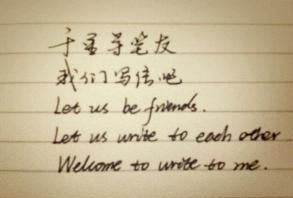 于寻笔友
我们写信吧
Let us be friends.
Let us write to each other
Welcome to write to me.